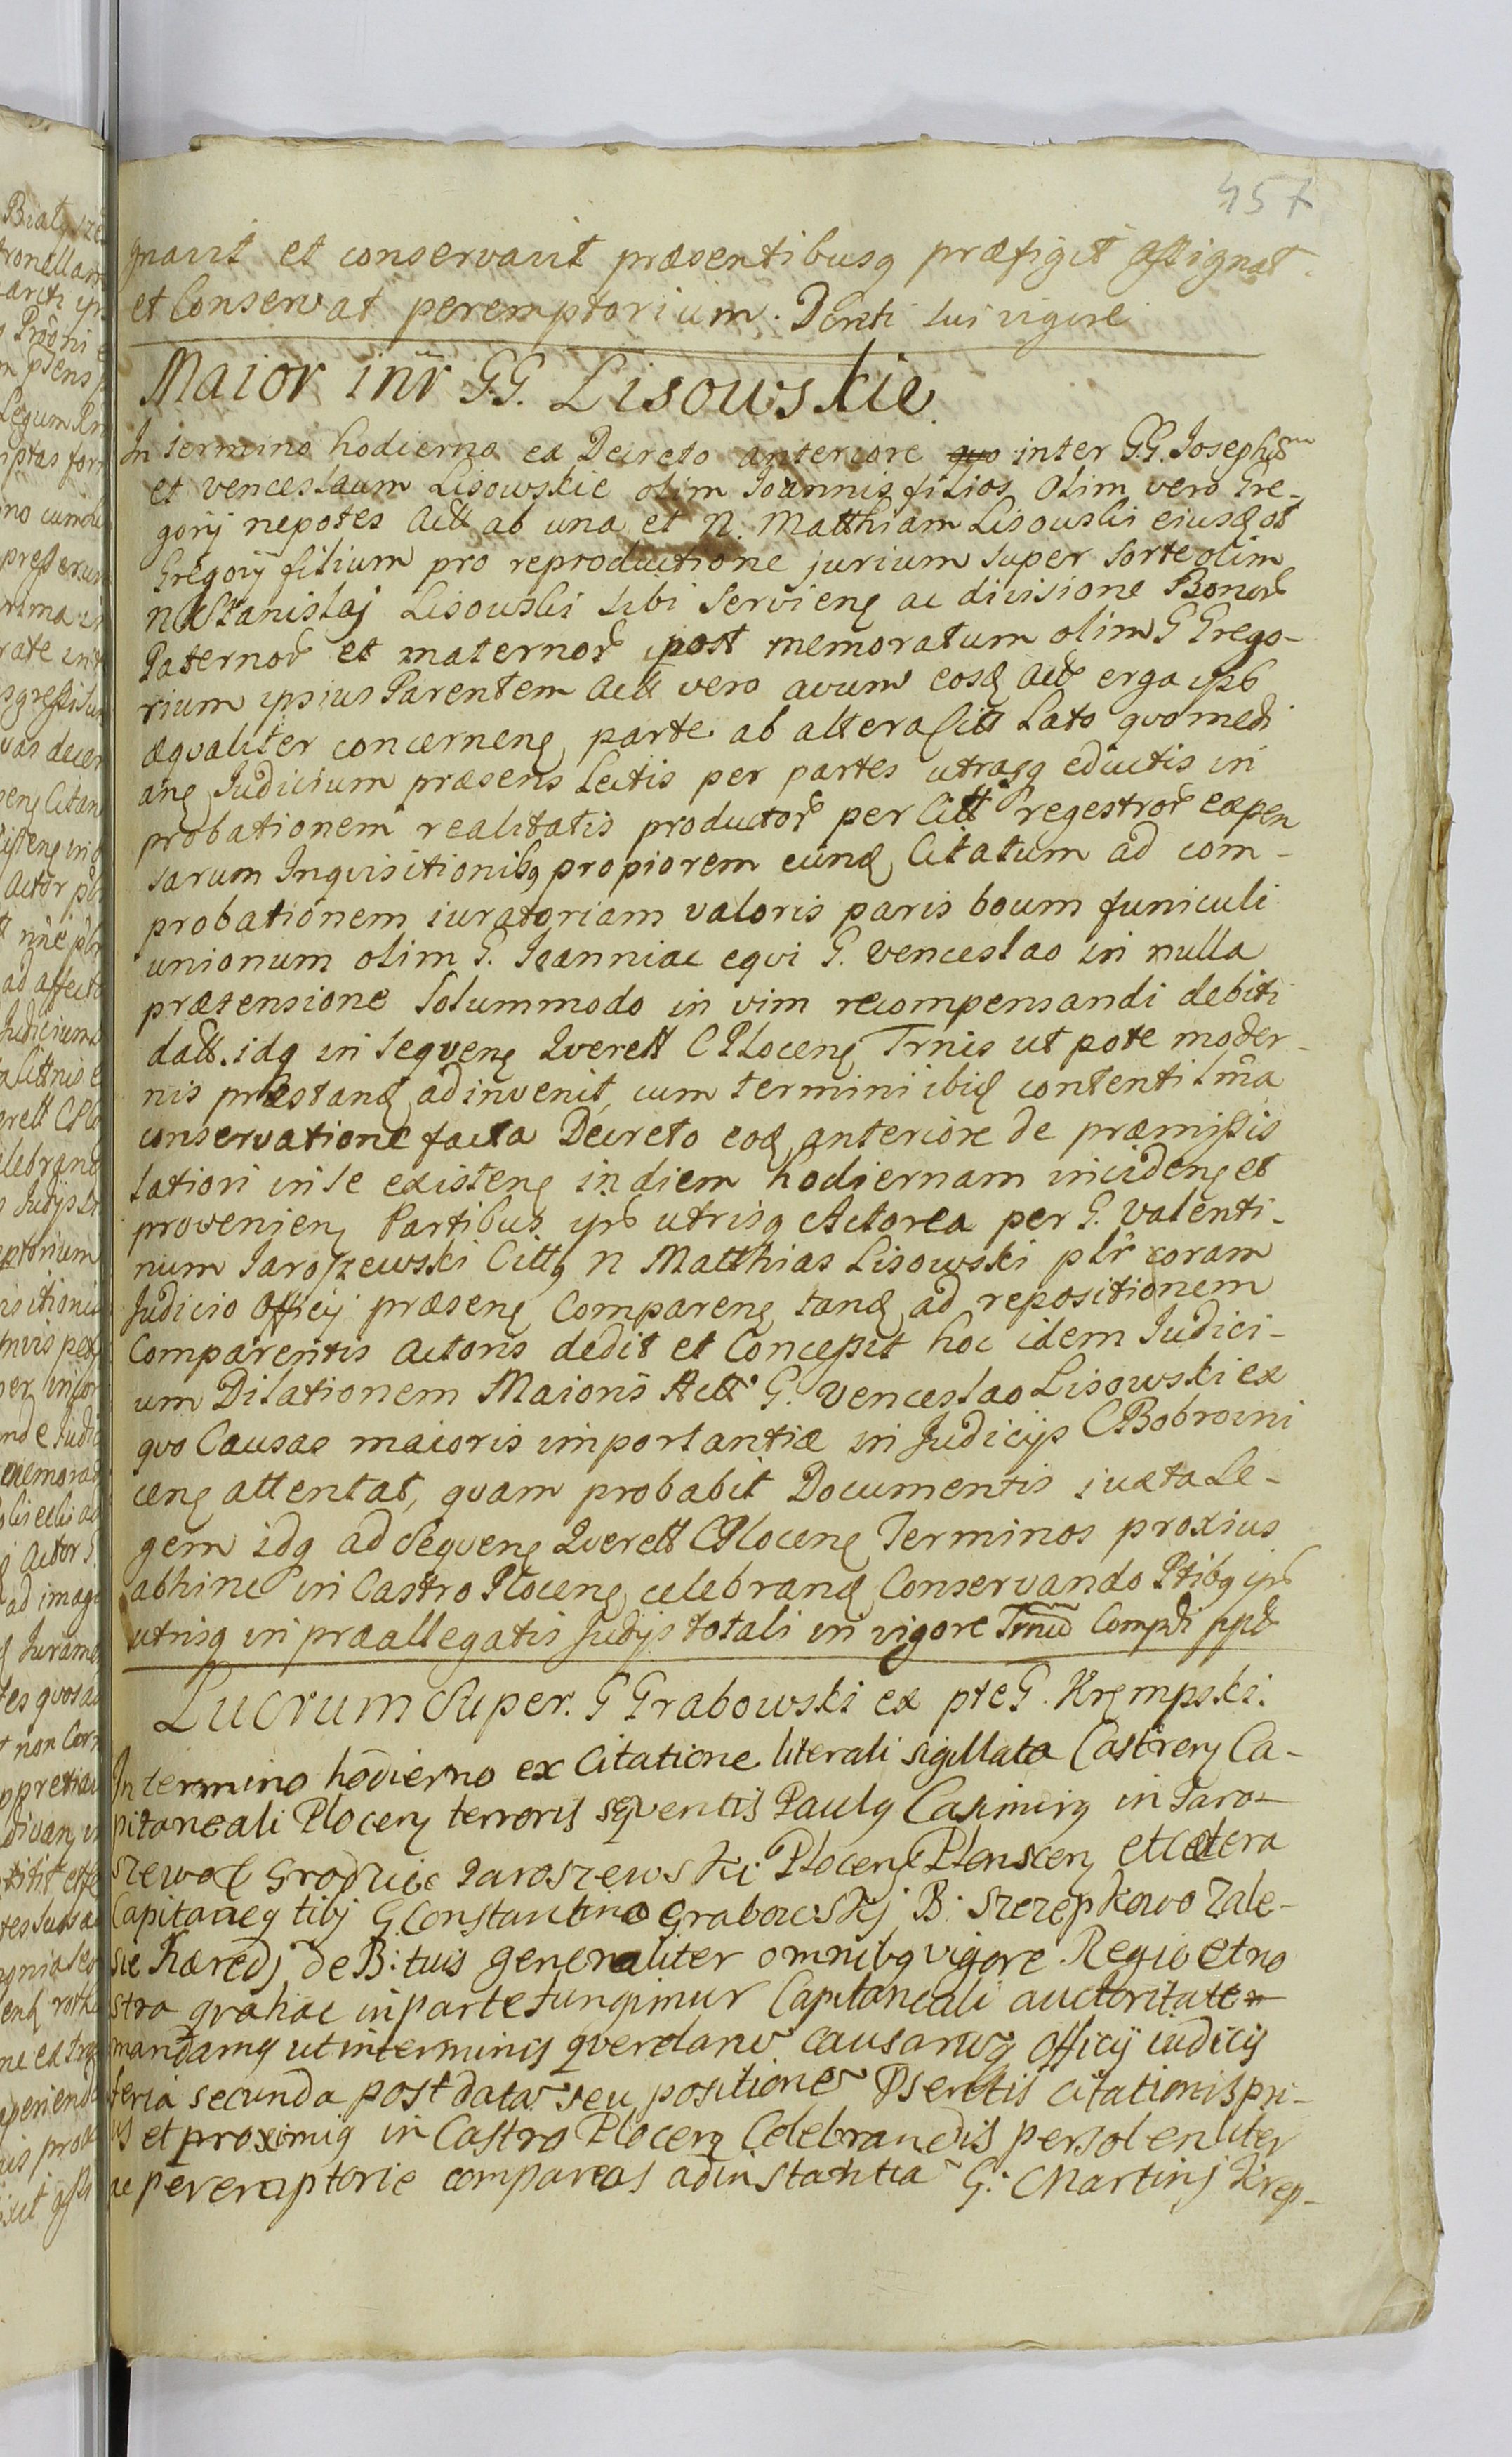 457
gnavit et conservavit præsentibusq præfigit assignat
et Conservat peremptorium. Dcreti sui vigore
Maior inr G.G. Lisowskie
In termino hodierno ex Decreto anteriore inter G.G. Josephũ
et venceslaum Lisowskie olim Joannis filios Olim vero Gre-
gorij nepotes Actt ab una et N. Matthiam Lisouski eiusd ol
Gregorij filium pro reproductione jurium super Sorte olim
N Stanislaj Lisouski sibi Servien ac divisione Bonor
Paternor et maternor post memoratum olim G Grego-
rium ipsius Parentem Actt vero avum eosd Act erga ips
æqvaliter concernen parte ab altera Citt Lato qvo medi
an Judicium præsens Lectis per partes utrasq eductis in
probationem realitatis productor per Citt regestror expen
sarum Inqvisitionibq propiorem eund Citatum ad com-
probationem iuratoriam valoris paris boum funiculi
unionum olim G. Joanni ac eqvi G. Venceslao in nulla
prætensione Solummodo in vim recompensandi debiti
datt. idq in Seqven Qverell C Plocen Trnis ut pote moder-
nis præstand adinvenit, cum termini ibid contenti
conservatione facta Decreto eod anteriore de præmissis
latiori in se existen in diem hodiernam inciden et
provenien Partibus ips utrisq Actorea per G. Valenti-
num Jaroszewski Cittq N Matthias Lisowski plr coram
Judicio Officij præsen Comparen tand ad repositionem
Comparentis Actoris dedit et Concessit hoc idem Judici-
um Dilationem Maioris Actt G. Venceslao Lisowski ex
qvo Causas maioris importantiæ in Judicijs C Bobrowni
cen attentat, qvam probabit Documentis iuxta Le-
gem idq ad Seqven Qverell C Plocen Terminos proxius
abhinc in Castro Plocen celebrand Conservando Ptibq ips
utrisq in præallegatis Judijs totali in vigore Trnũ Compdi ppt
Lucrum Super. G Grabowski ex pte G. Krempski.
In termino hodierno ex Citatione literali sigillata Castren Ca-
pitaneali Plocen terroris seqventis Paulq Casimirq in Jaro-
szewo Grodzice Jaroszewski Plocen Plonscen etcetera
Capitaneq tibj G Constantino Grabowskj B: Szczepkowo Zale-
sie Hæredj de B: tuis generaliter omnibq vigore Regio et no
stra qva hac in parte fungimur Capitaneali auctoritate
mandamq ut in terminis qverelarũ causarũq Officij iudicij
feria secunda post datã seu positionẽ Psentis citationis pri-
is et proximiq in Castro Plocen Celebrandis personaliter
ac peremptorie compareas ad instantiã G: Martinj Krep-